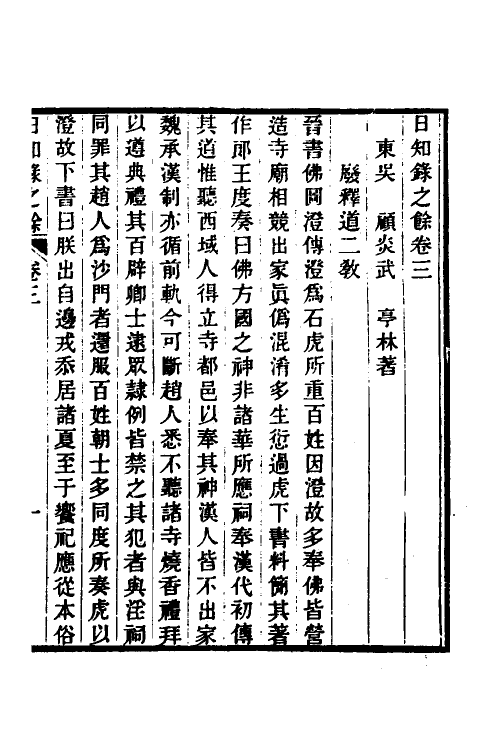 日知錄之餘卷三
東吳　顧炎武　亭林著
廢釋道二教
晉書佛圖澄傳澄爲石虎所重百姓因澄故多奉佛皆營
造寺廟相競出家眞僞混淆多生愆過虎下書料簡其著
作郎王度奏曰佛方國之神非諸華所應祠奉漢代初傳
其道惟聽西域人得立寺都邑以奉其神漢人皆不出家
魏承漢制亦循前軌今可斷趙人悉不聽諸寺燒香禮拜
以遵典禮其百辟卿士逮眾隸例皆禁之其犯者與淫祠
同罪其趙人爲沙門者還服百姓朝士多同度所奏虎以
澄故下書曰朕出自邊戎忝居諸夏至于饗祀應從本俗
日知錄之餘　卷三　一